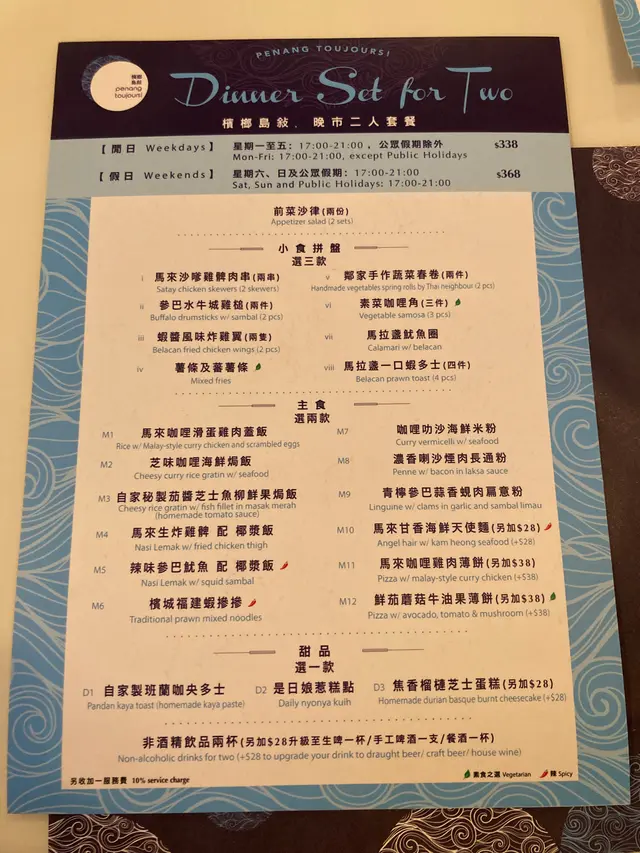 PENANG TOUJOURS!
檳榔
魚敍
penang
toujours!
Dinner Set for Two
檳榔島敍．晚市二人套餐
【閒日 Weekdays】 星期一至五：17:00-21:00，公眾假期除外 $338
Mon-Fri: 17:00-21:00, except Public Holidays
【假日 Weekends】 星期六、日及公眾假期：17:00-21:00 $368
Sat, Sun and Public Holidays: 17:00-21:00
前菜沙律(兩份)
Appetizer salad (2 sets)
小食拼盤
選三款
i 馬來沙嗲雞髀肉串(兩串)
Satay chicken skewers (2 skewers)
ii 參巴水牛城雞槌(兩件)
Buffalo drumsticks w/ sambal (2 pcs)
iii 蝦醬風味炸雞翼(兩隻)
Belacan fried chicken wings (2 pcs)
iv 薯條及蕃薯條
Mixed fries
v 鄰家手作蔬菜春卷(兩件)
Handmade vegetables spring rolls by Thai neighbour (2 pcs)
vi 素菜咖喱角(三件)
Vegetable samosa (3 pcs)
vii 馬拉盞魷魚圈
Calamari w/ belacan
viii 馬拉盞一口蝦多士(四件)
Belacan prawn toast (4 pcs)
主食
選兩款
M1 馬來咖喱滑蛋雞肉蓋飯
Rice w/ Malay-style curry chicken and scrambled eggs
M2 芝味咖喱海鮮焗飯
Cheesy curry rice gratin w/ seafood
M3 自家秘製茄醬芝士魚柳鮮果焗飯
Cheesy rice gratin w/ fish fillet in masak merah
(homemade tomato sauce)
M4 馬來生炸雞髀 配 椰漿飯
Nasi Lemak w/ fried chicken thigh
M5 辣味參巴魷魚 配 椰漿飯
Nasi Lemak w/ squid sambal
M6 檳城福建蝦摻摻
Traditional prawn mixed noodles
M7 咖喱叻沙海鮮米粉
Curry vermicelli w/ seafood
M8 濃香喇沙煙肉長通粉
Penne w/ bacon in laksa sauce
M9 青檸參巴蒜香蜆肉扁意粉
Linguine w/ clams in garlic and sambal limau
M10 馬來甘香海鮮天使麵(另加$28)
Angel hair w/ kam heong seafood (+$28)
M11 馬來咖喱雞肉薄餅(另加$38)
Pizza w/ malay-style curry chicken (+$38)
M12 鮮茄蘑菇牛油果薄餅(另加$38)
Pizza w/ avocado, tomato & mushroom (+$38)
甜品
選一款
D1 自家製班蘭咖央多士
Pandan kaya toast (homemade kaya paste)
D2 是日娘惹糕點
Daily nyonya kuih
D3 焦香榴槤芝士蛋糕(另加$28)
Homemade durian basque burnt cheesecake (+$28)
非酒精飲品兩杯(另加$28升級至生啤一杯/手工啤酒一支/餐酒一杯)
Non-alcoholic drinks for two (+$28 to upgrade your drink to draught beer/ craft beer/ house wine)
另收加一服務費 10% service charge
素食之選 Vegetarian 辣 Spicy